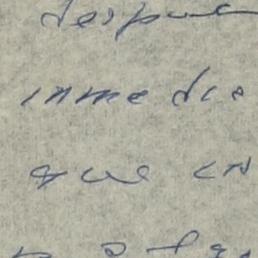 despue
inmedia
que en